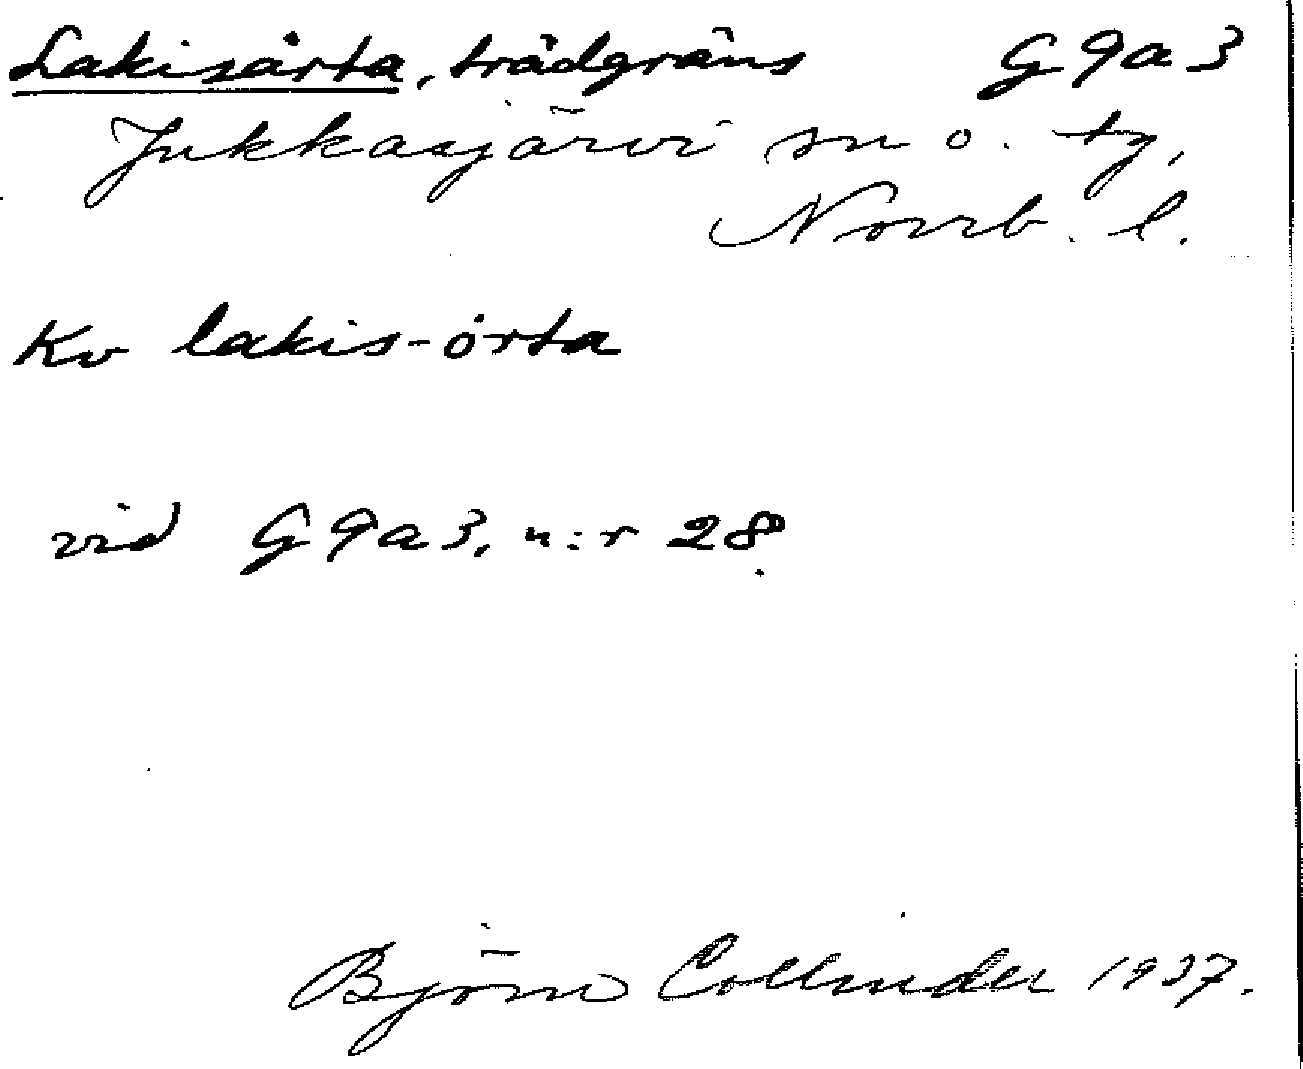 Lakisårta, trädgräns G9a3
Jukkasjärvi sn o. tg,
Norrb. l.
Kv lakis-órta
vid G9a3, n:r 28.
Björn Collinder 1937.